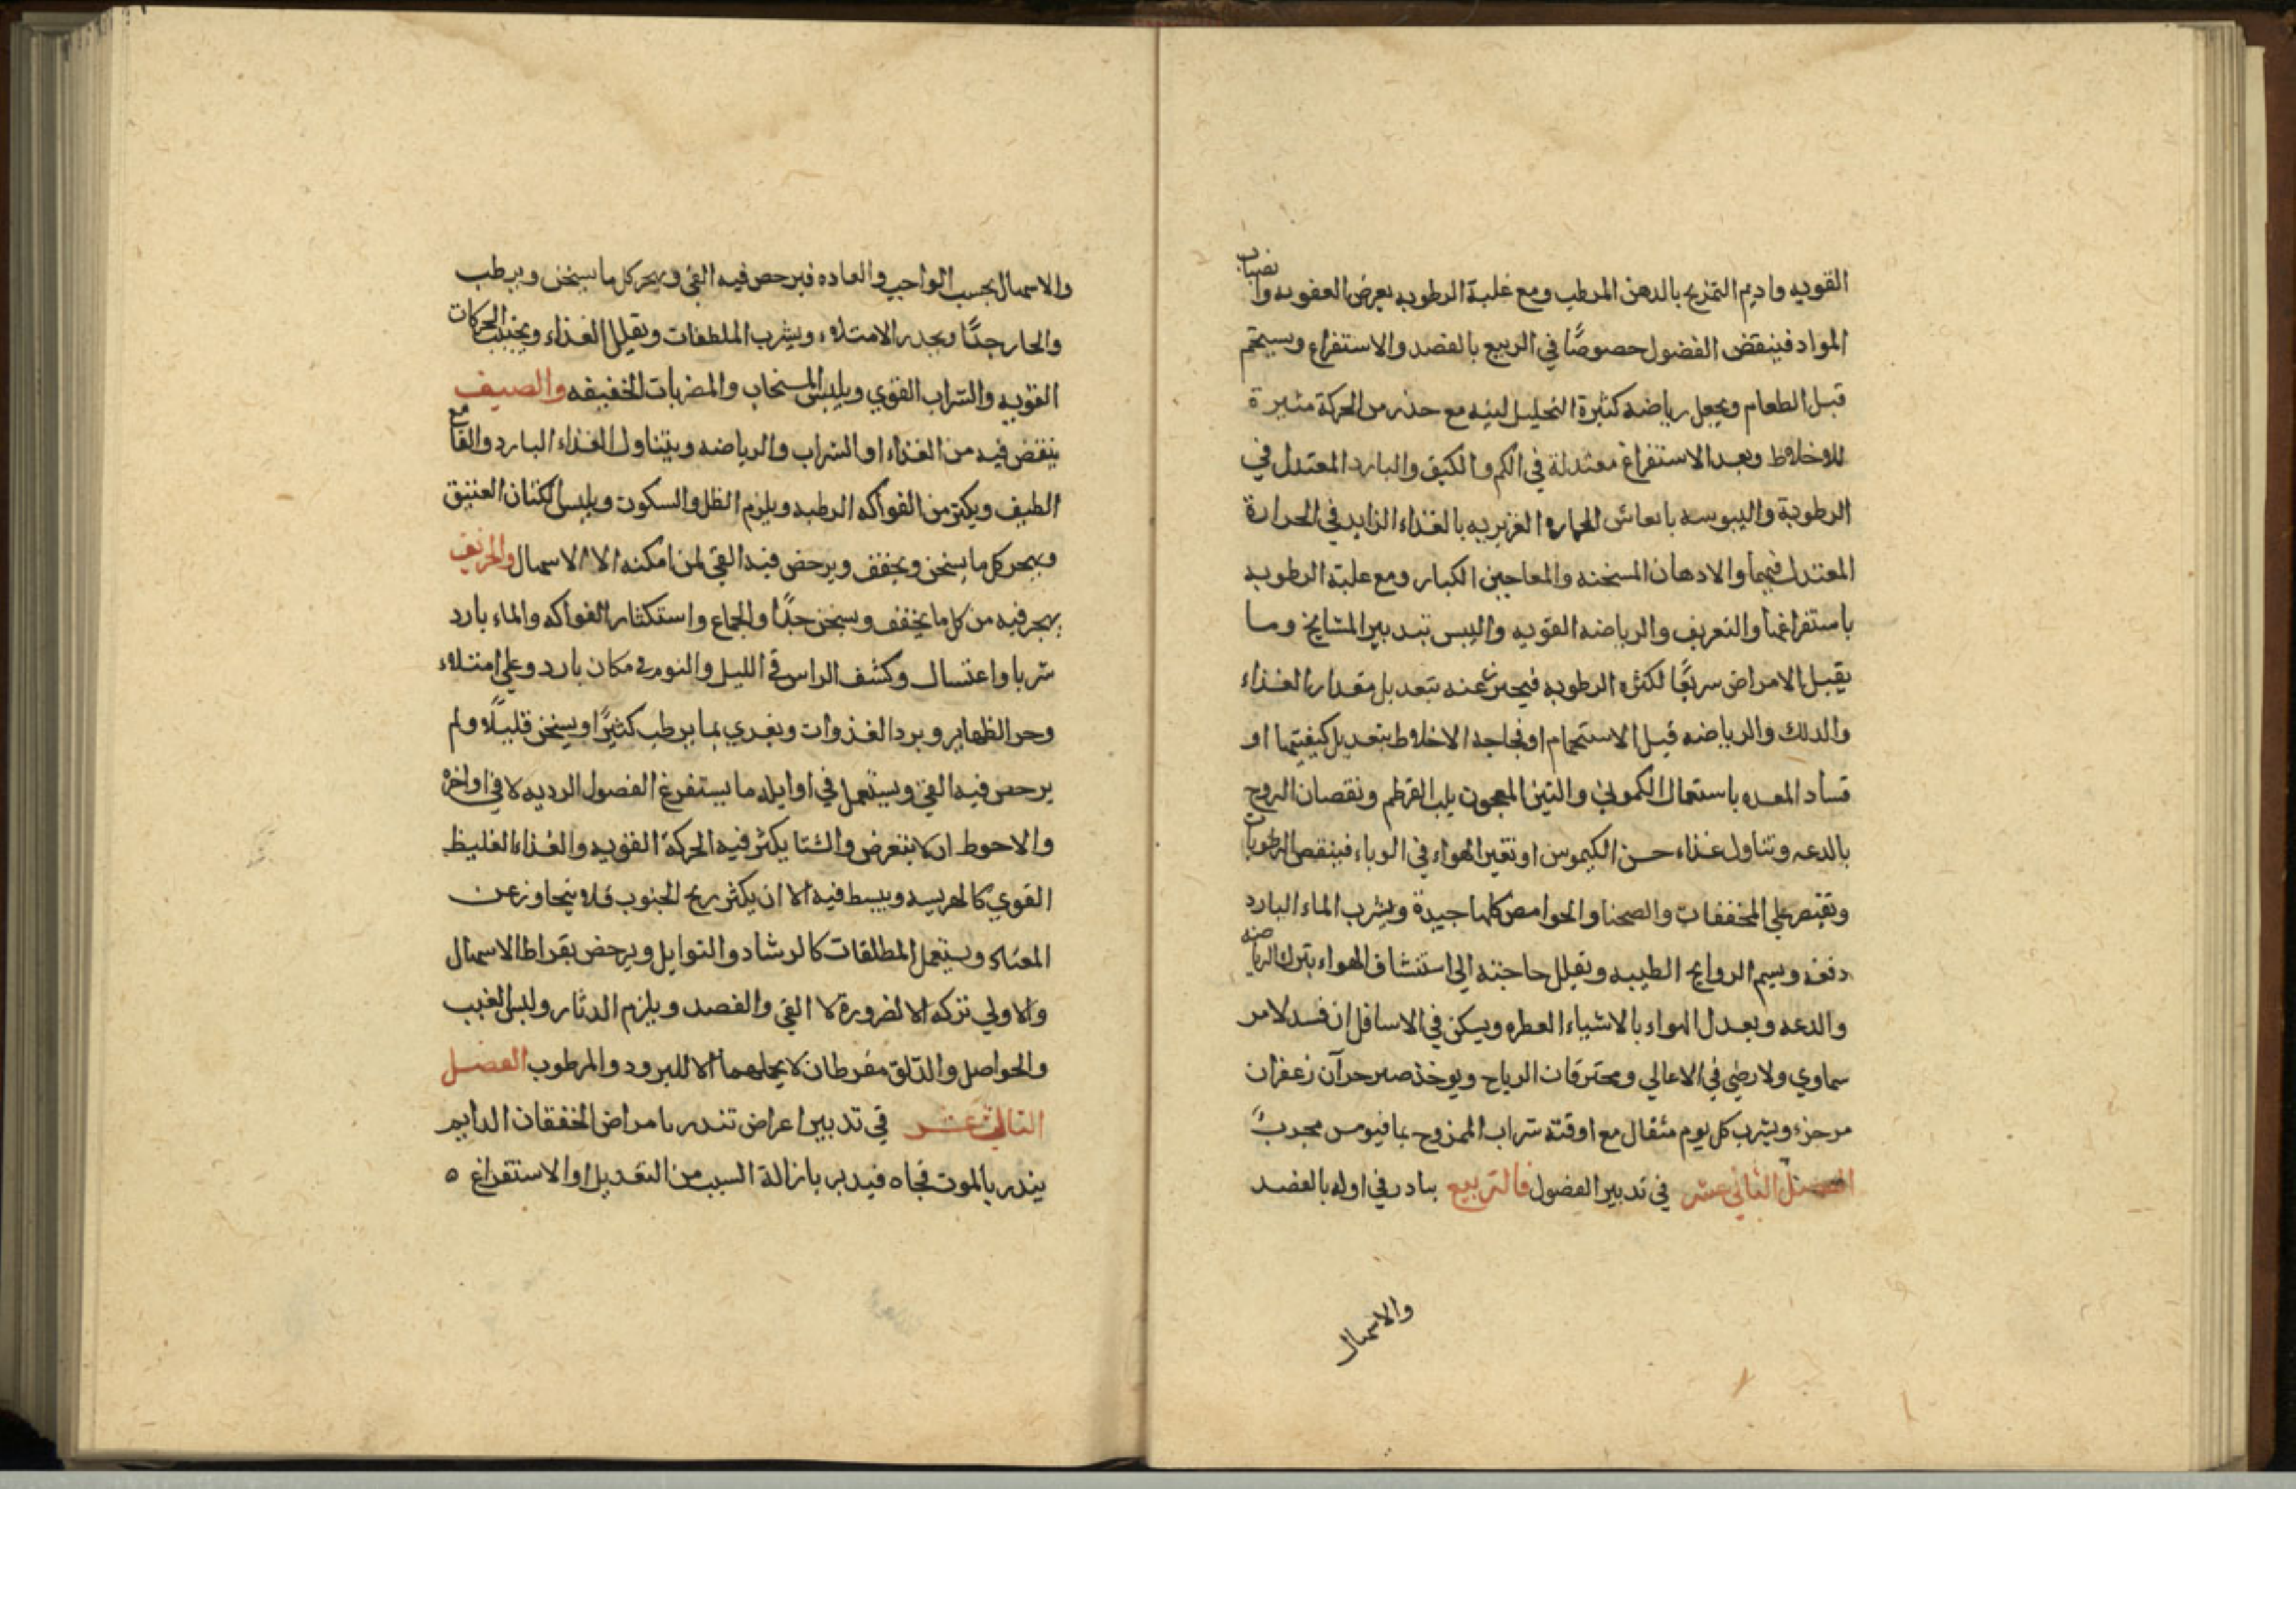 القويه واديم التمريخ بالدهن المرطب ومع غلبة الرطوبه يعرض العفونه وانصباب
المواد فينقض الفضول خصوصًا في الربيع بالفصد والاستفراغ ويستحم
قبل الطعام ويجعل رياضه كثيرة التحليل لينه مع حذر من الحركة مثيرة
للاخلاط وبعد الاستفراغ معتدلة في الكم والكيف والبارد المعتدل في
الرطوبة واليبوسه بانعاش الحراره الغزيريه بالغذاء الزايد في الحرارة
المعتدل فيهما والادهان المسخنه والمعاجين الكبار ومع غلبة الرطوبه
باستفراغها والتعريف والرياضه القويه واليبس بتدبير المشايخ وما
يقبل الامراض سريعًا لكثره الرطوبه فيحترز عنه بتعديل مقدار الغذاء
والدلك والرياضه قبل الاستحمام او فجاجه الاخلاط بتعديل كيفيتها او
فساد المعده باستعمال الكموني والتين المعجون بلب القرطم ونقصان الروح
بالدعه وتناول غذاء حسن الكيموس او تغير الهواء في الوباء فينقص الرطوبات
ويقتصر علي المخففات والصحنا والحوامص كلها جيدة ويشرب الماء البارد
دفعه ويشم الروايح الطيبه ويقلل حاجته الي استنشاق الهواء بترك الرياضه
والدعه ويعدل الهواء بالاشياء العطره ويسكن في الاسافل ان فسد لامر
سماوي ولارضي في الاعالي ومخترقات الرياح ويوخذ صبر جزآن زعفران
مر جزء ويشرب كل يوم مثقال مع اوقته شراب الممزوج بما فيومن مجرب
الفصل الثاني عشر في تدبير الفصول فالربيع يبادر في اوله بالفصد
والاسهال
والاسهال بحسب الواجب والعاده فيرخص فيه القي ويهجر كل ما يسخن ويرطب
والحار جدًا ويحذر الامتلاء ويشرب الملطفات ويقلل الغذاء ويجتنب الحركات
القويه والشراب القوي ويلبس السنجاب والمضربات الخفيفه والصيف
ينقض فيه من الغذاء او الشراب والرياضه ويتناول الغذاء البارد والقامع
الطيف ويكثر من الفواكه الرطبه ويلزم الظل والسكون ويلبس الكتان العتيق
ويهجر كل ما يسخن ويجفف ويرخص فيه القي لمن امكنه الا الاسهال والخريف
يهجر فيه من كل ما يجفف ويسخن جدًا والجماع واستكثار الفواكه والماء بارد
شربا واغتسال وكشف الراس في الليل والنوم في مكان بارد وعلي امتلاء
وحر الظهاير وبرد الغذوات ويغدي بما يرطب كثيرًا ويسخن قليلًا ولم
يرخص فيه القي ويستعمل في اوايله ما يستفرغ الفضول الرديه لا في اواخره
والاحوط ان لا يتعرض والشتا يكثر فيه الحركة القويه والغذاء الغليظ
القوي كالهريسه ويبسط فيه الا ان يكثر ريح الجنوب فلا يتجاوز عن
المعتاد ويستعمل المطلقات كالرشاد والتوابل ويرخص بقراط الاسهال
والاولي تركه الا لضرورة لا القي والفصد ويلزم الدثار ولبس الغبب
والحواصل والدلق مفرطان لا يحملهما الا للبرود والمرطوب الفصل
الثالث عشر في تدبير اعراض تنذر بامراض الخفقان الدايم
ينذر بالموت فجاه فيدبر بازالة السبب من التعديل او الاستفراغ ٥